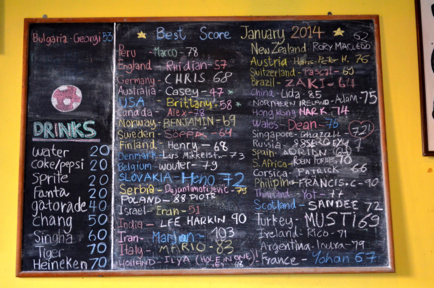 Bulgaria - Georgi 83
DRINKS
water 20
coke/pepsi 20
sprite 20
fanta 20
gatorade 40
chang 50
Singha 60
Tiger 70
Heineken 70
Best Score January 2014
Peru - Marco - 78
England - Rhidian - 57
Germany - CHRIS 68
Australia - Casey - 47
USA Brittany 58
Canada - Alex
Norway - BENJAMIN 69
Sweden - 69
Finland - Henry - 68
Denmark - Luis - 73
Belgium - WOUTER - 79
SLOVAKIA - Heno 72
Serbia -
POLAND - 88 PIOTR
Israel - Eran - 51
India - LEE HARKIN 90
Iran - 103
Italy - MARIO - 83
HOLLAND - ILYA (HOLE IN ONE)
New Zealand RORY MACLEOD 62
Austria - Hans Peter H. 76
Switzerland - Pascal - 60
Brazil - ZAKI - 64
China - Lida - 85
NORTHERN IRELAND - Adam - 75
Hong Kong HARK - 74
Wales - Dean - 76
Singapore -
Russia -
Spain -
S. Africa - 70
Corsica - PATRICK 66
Philipins - FRANCIS.C - 90
Thailand -
Scotland - SANDEE 72
Turkey - MUSTI 69
Ireland - Rico - 71
Argentina - Indra - 79
France - Yohan 67